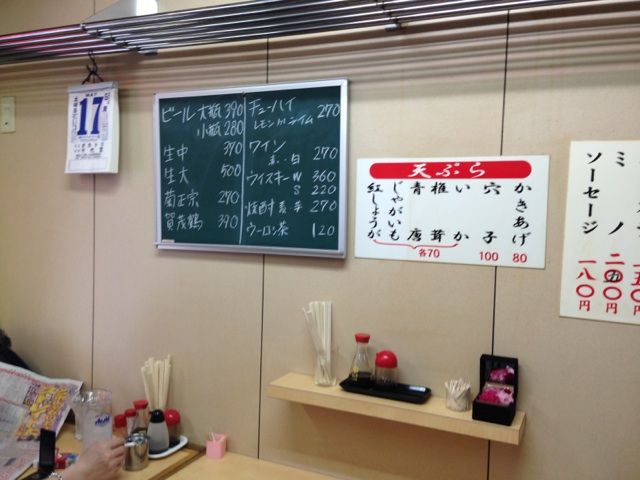 17
ビール 大瓶 390
小瓶 280
生中 370
生大 500
菊正宗 270
賀茂鶴 390
チューハイ 270
レモン ライム
ワイン
赤・白 270
ウイスキー W 360
S 220
焼酎 麦 芋 270
ウーロン茶 120
天ぷら
かきあげ 80
穴子 100
いか
椎茸
青唐
じゃがいも
紅しょうが
各70
ミノ 二〇〇円
ソーセージ 一八〇円
Asahi